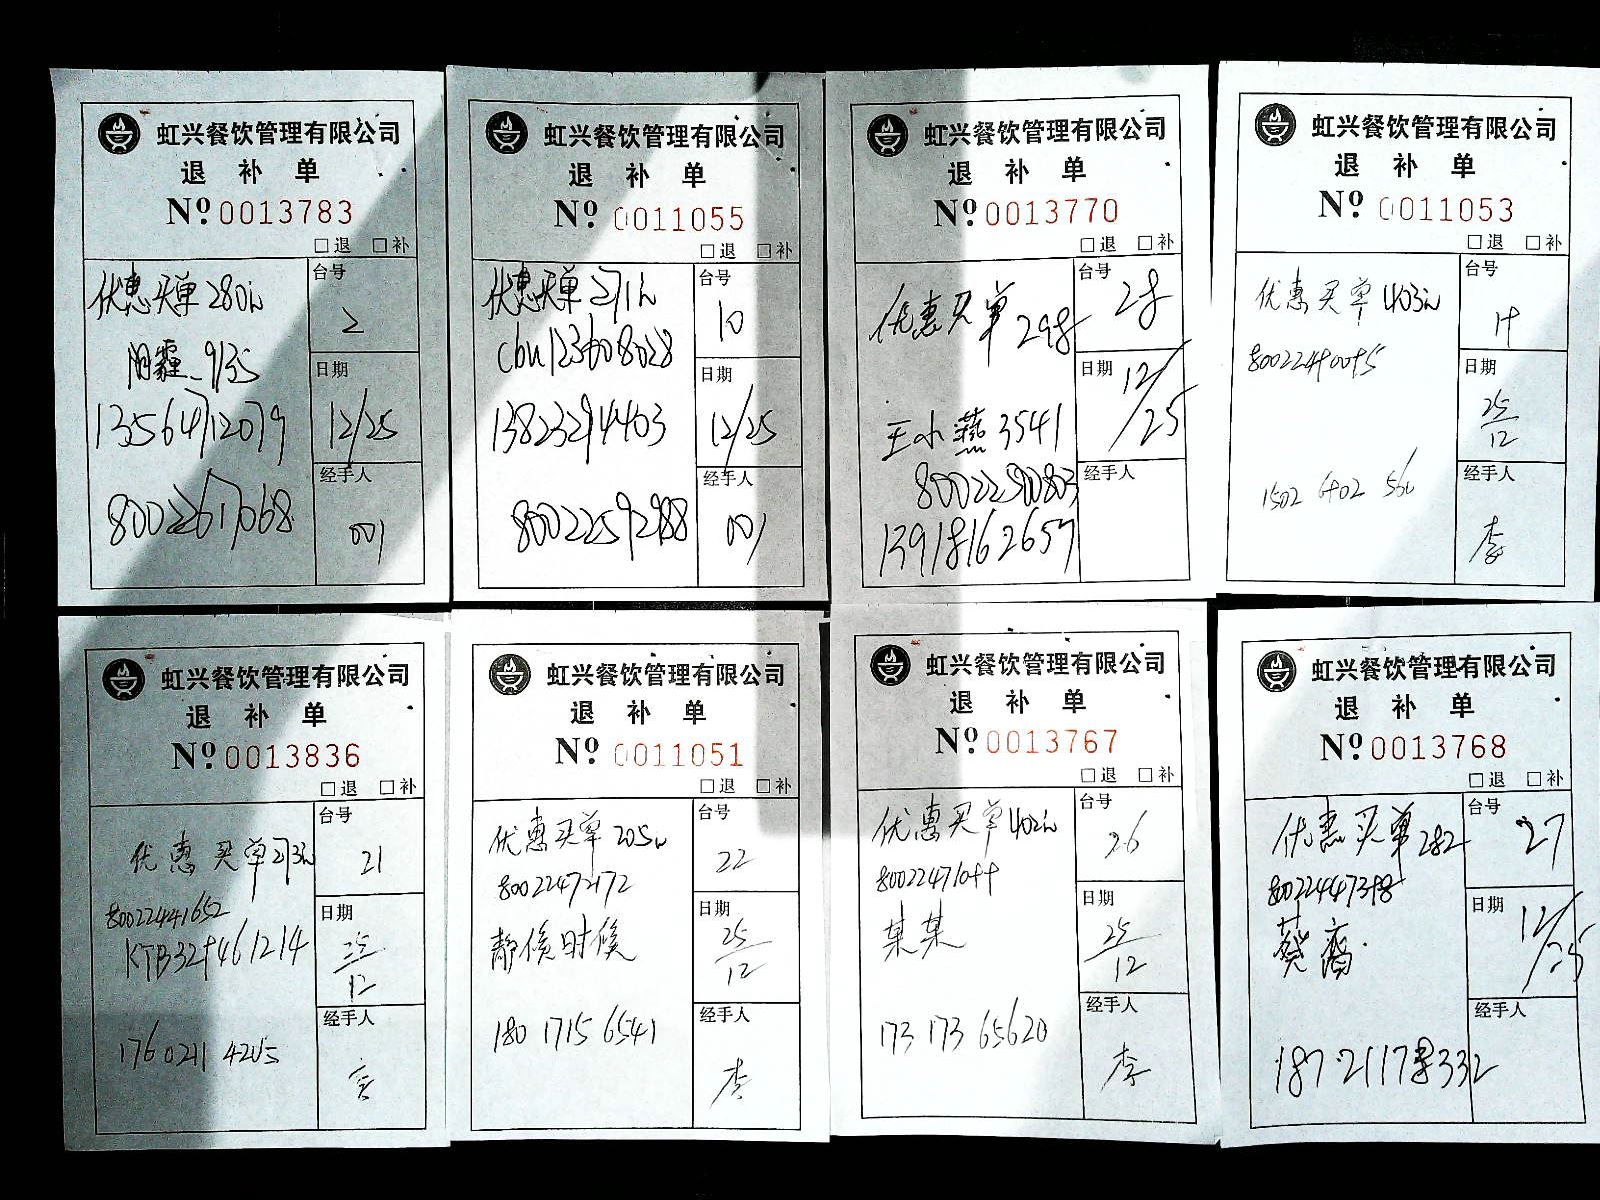 虹兴餐饮管理有限公司
退 补 单
Nº 0013783
□退 □补
优惠买单280
台号
2
日期
12/25
13564712079
经手人
80022617068
001
虹兴餐饮管理有限公司
退 补 单
Nº 0011055
□退 □补
优惠买单271
台号
10
cbu123608028
日期
12/25
13823294403
经手人
80022592988
001
虹兴餐饮管理有限公司
退 补 单
Nº 0013770
□退 □补
优惠买单298
台号
28
日期
12/25
王小燕3541
经手人
80022590803
13918162657
虹兴餐饮管理有限公司
退 补 单
Nº 0011053
□退 □补
优惠买单403
台号
日期
25/12
经手人
李
虹兴餐饮管理有限公司
退 补 单
Nº 0013836
□退 □补
优惠买单273
台号
21
80022441652
日期
25/12
经手人
虹兴餐饮管理有限公司
退 补 单
Nº 0011051
□退 □补
优惠买单205
台号
22
80022472172
日期
25/12
静候时候
经手人
180 1715 6541
李
虹兴餐饮管理有限公司
退 补 单
Nº 0013767
□退 □补
优惠买单402
台号
26
日期
25/12
某某
经手人
173 173 65620
李
虹兴餐饮管理有限公司
退 补 单
Nº 0013768
□退 □补
优惠买单282
台号
27
80022447398
日期
12/25
经手人
18721178332